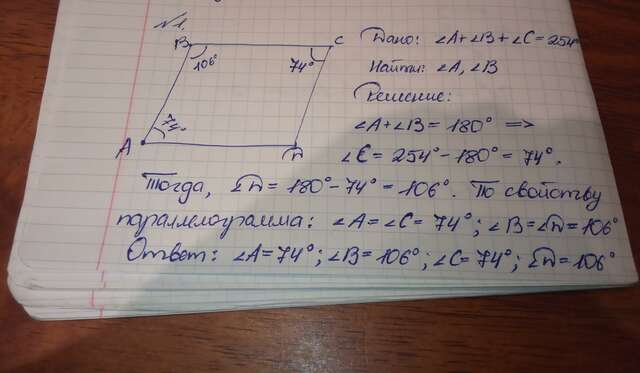 №1.
B
C
106°
74°
74°
A
D
Дано: ∠A+∠B+∠C=254°
Найти: ∠A, ∠B
Решение:
∠A+∠B=180° =>
∠C=254°-180°=74°.
Тогда, ∠D=180°-74°=106°. По свойству
параллелограмма: ∠A=∠C=74°; ∠B=∠D=106°
Ответ: ∠A=74°; ∠B=106°; ∠C=74°; ∠D=106°